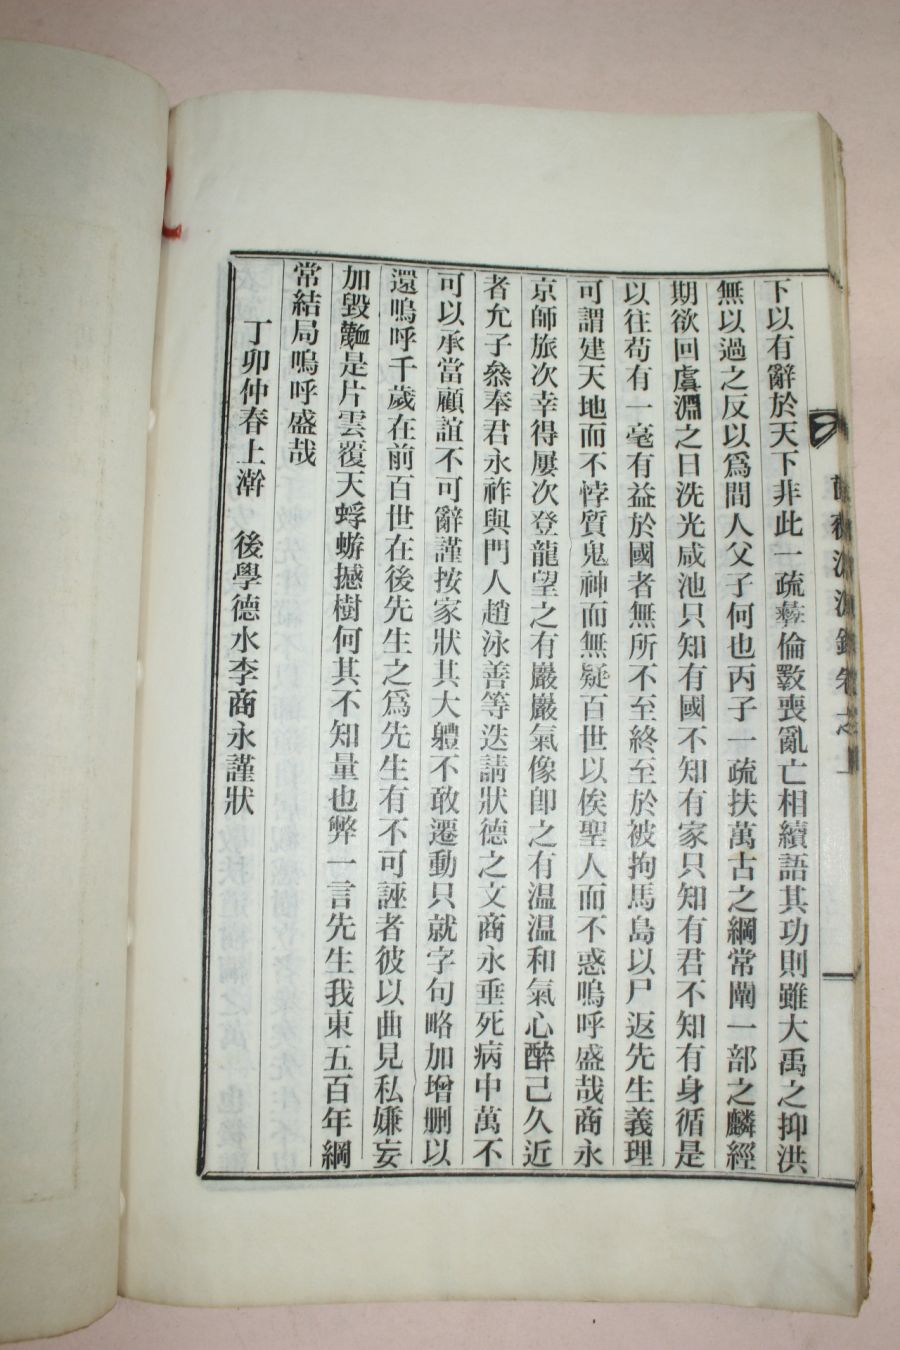 下以有辭於天下非此一疏彜倫斁喪亂亡相續語其功則雖大禹之抑洪
無以過之反以爲間人父子何也丙子一疏扶萬古之綱常闡一部之麟經
期欲回虞淵之日洗光咸池只知有國不知有家只知有君不知有身循是
以往苟有一毫有益於國者無所不至終至於被拘馬島以尸返先生義理
可謂建天地而不悖質鬼神而無疑百世以俟聖人而不惑嗚呼盛哉商永
京師旅次幸得屢次登龍望之有巖巖氣像卽之有温温和氣心醉己久近
者允子叅奉君永祚與門人趙泳善等迭請狀德之文商永垂死病中萬不
可以承當顧誼不可辭謹按家狀其大軆不敢遷動只就字句略加增刪以
還嗚呼千歲在前百世在後先生之爲先生有不可誣者彼以曲見私嫌妄
加毀是片雲覆天蜉蝣撼樹何其不知量也弊一言先生我東五百年綱
常結局嗚呼盛哉
丁卯仲春上澣 後學德水李商永謹狀